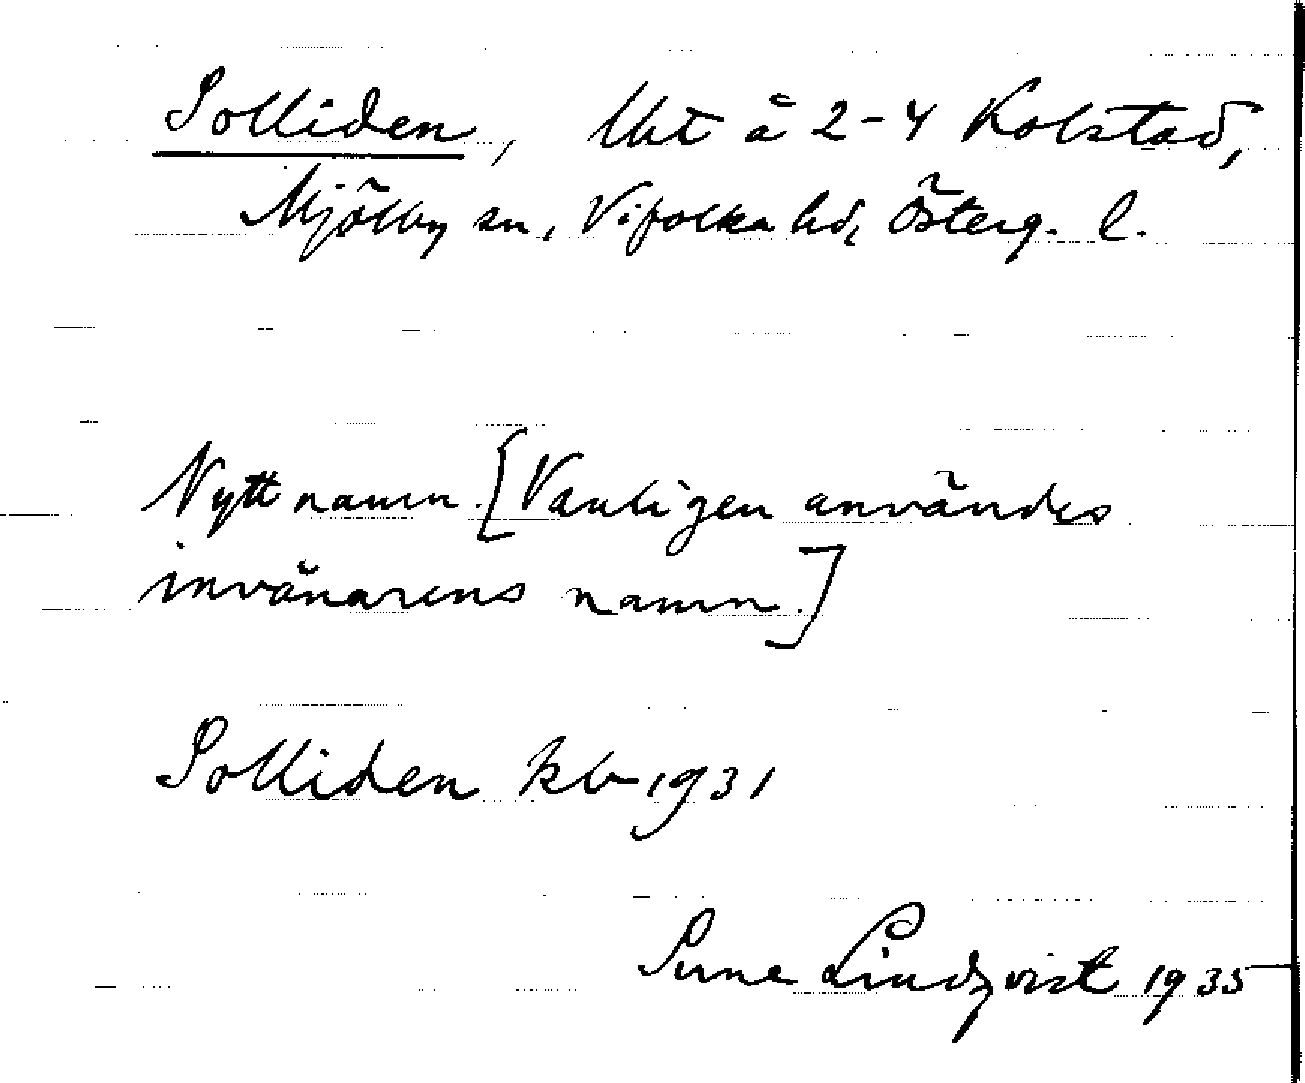 Solliden, lht å 2-4 Kolstad,
Mjölby sn, Vifolka hd, Österg. l.
Nytt namn. [Vanligen användes
invånarens namn.]
Solliden kb 1931
Sune Lindqvist 1935